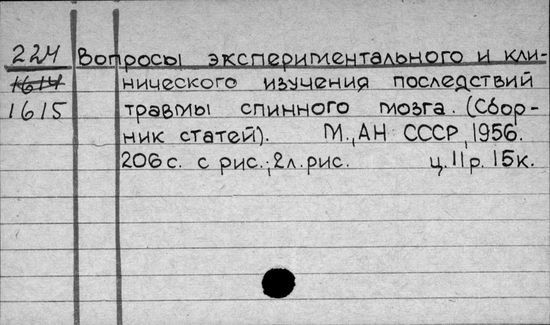 22Ч Вопросы экспериментального и кли-
1614 нического изучения последствий
1615 травмы спинного мозга. (Сбор-
ник статей). М., АН СССР, 1956.
206 с. с рис.; 2 л. рис. ц. 11 р. 15 к.